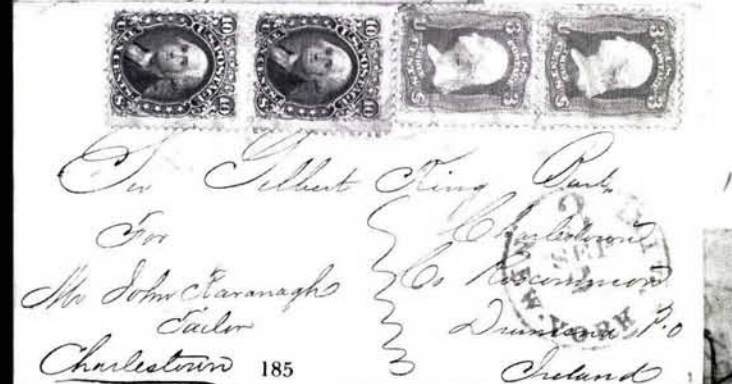 10 U.S. POSTAGE 10
10 U.S. POSTAGE 10
3 U 3
3 U 3
Sir Gilbert King Bart.
For
Mr John Kavanagh
Tailor
Charlestown
Charlestown
Co Roscommon
Drumsna P.O
Ireland
NEW YORK
SEP
2
185